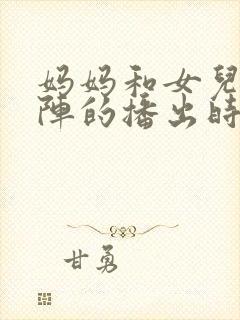 妈妈和女兒
陣的播出時
甘勇